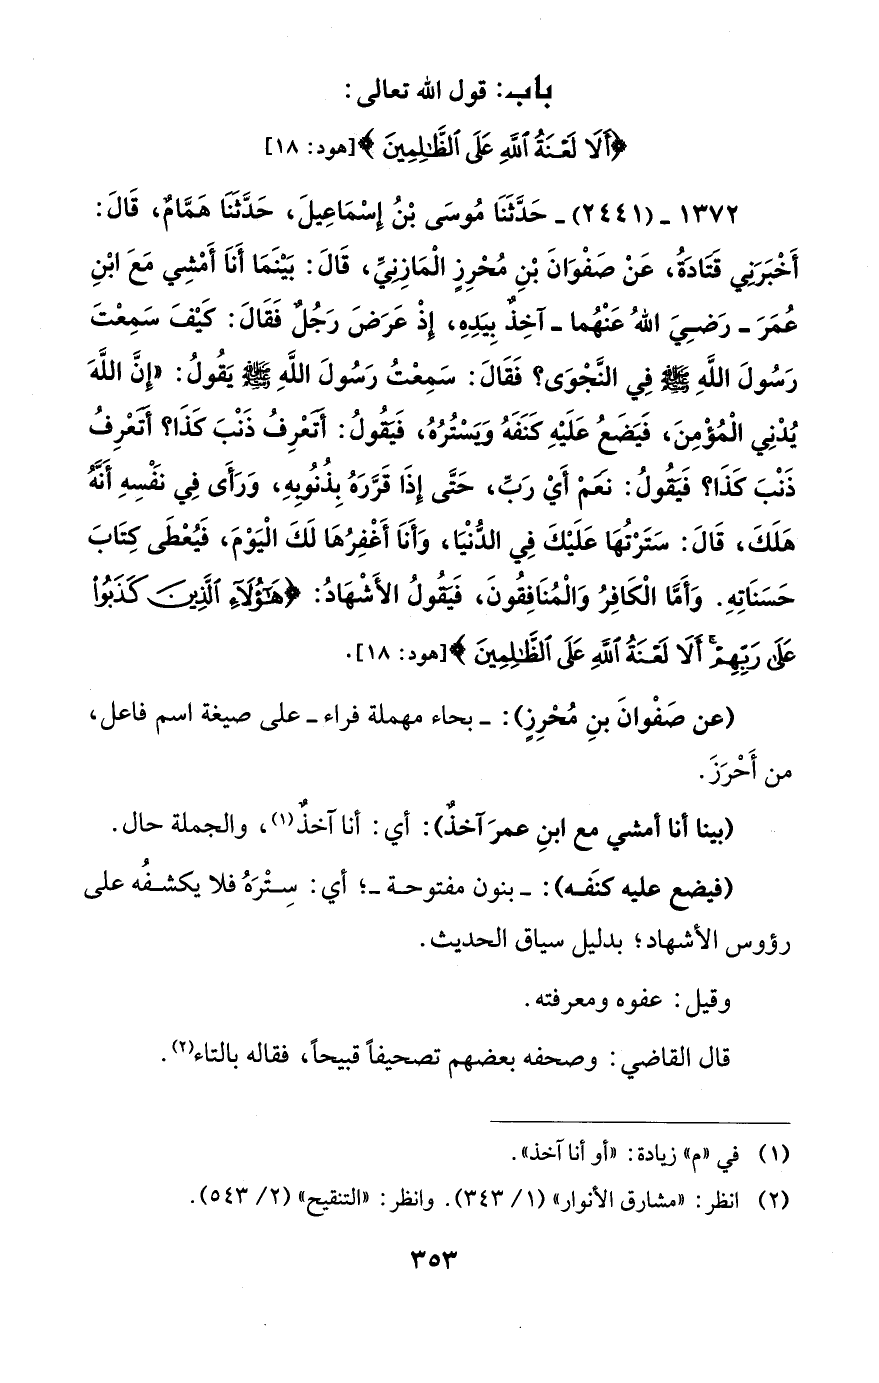 باب: قول الله تعالى:
﴿أَلَا لَعْنَةُ ٱللَّهِ عَلَى ٱلظَّٰلِمِينَ﴾ [هود: ١٨]
١٣٧٢ ـ (٢٤٤١) ـ حَدَّثَنَا مُوسَى بْنُ إِسْمَاعِيلَ، حَدَّثَنَا هَمَّامٌ، قَالَ:
أَخْبَرَنِي قَتَادَةُ، عَنْ صَفْوَانَ بْنِ مُحْرِزٍ الْمَازِنِيِّ، قَالَ: بَيْنَمَا أَنَا أَمْشِي مَعَ ابْنِ
عُمَرَ ـ رَضِيَ اللهُ عَنْهُما ـ آخِذٌ بِيَدِهِ، إِذْ عَرَضَ رَجُلٌ فَقَالَ: كَيْفَ سَمِعْتَ
رَسُولَ اللَّهِ ﷺ فِي النَّجْوَى؟ فَقَالَ: سَمِعْتُ رَسُولَ اللَّهِ ﷺ يَقُولُ: «إِنَّ اللَّهَ
يُدْنِي الْمُؤْمِنَ، فَيَضَعُ عَلَيْهِ كَنَفَهُ وَيَسْتُرُهُ، فَيَقُولُ: أَتَعْرِفُ ذَنْبَ كَذَا؟ أَتَعْرِفُ
ذَنْبَ كَذَا؟ فَيَقُولُ: نَعَمْ أَيْ رَبِّ، حَتَّى إِذَا قَرَّرَهُ بِذُنُوبِهِ، وَرَأَى فِي نَفْسِهِ أَنَّهُ
هَلَكَ، قَالَ: سَتَرْتُهَا عَلَيْكَ فِي الدُّنْيَا، وَأَنَا أَغْفِرُهَا لَكَ الْيَوْمَ، فَيُعْطَى كِتَابَ
حَسَنَاتِهِ. وَأَمَّا الْكَافِرُ وَالْمُنَافِقُونَ، فَيَقُولُ الأَشْهَادُ: ﴿هَٰٓؤُلَآءِ ٱلَّذِينَ كَذَبُوا۟
عَلَىٰ رَبِّهِمْ ۚ أَلَا لَعْنَةُ ٱللَّهِ عَلَى ٱلظَّٰلِمِينَ﴾ [هود: ١٨].
(عن صَفْوانَ بنِ مُحْرِزٍ): ـ بحاء مهملة فراء ـ على صيغة اسم فاعل،
من أَحْرَزَ.
(بينا أنا أمشي مع ابنِ عمرَ آخذٌ): أي: أنا آخذٌ(١)، والجملة حال.
(فيضع عليه كنَفَه): ـ بنون مفتوحة ـ؛ أي: سِتْرَهُ فلا يكشفُه على
رؤوس الأشهاد؛ بدليل سياق الحديث.
وقيل: عفوه ومعرفته.
قال القاضي: وصحفه بعضهم تصحيفاً قبيحاً، فقاله بالتاء(٢).
(١) في «م» زيادة: «أو أنا آخذ».
(٢) انظر: «مشارق الأنوار» (١/ ٣٤٣). وانظر: «التنقيح» (٢/ ٥٤٣).
٣٥٣